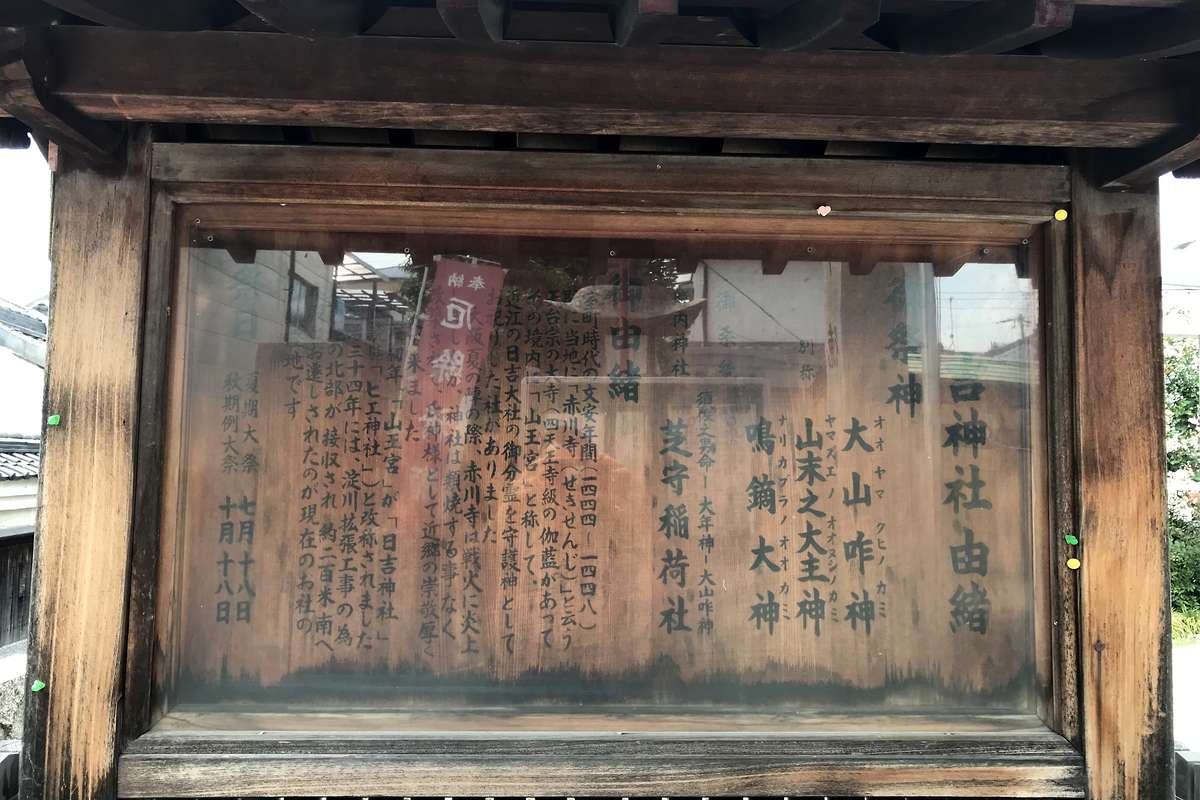 吉神社由緒
御祭神
オオヤマクヒノカミ
大山咋神
ヤマズエノオオヌシノカミ
山末之大主神
別称
ナリカブラノオオカミ
鳴鏑大神
須佐之男命―大年神―大山咋神
内神社
芝守稲荷社
御由緒
室町時代の文安年間(一四四四―一四四八)
に当地に「赤川寺(せきせんじ)」と云う
天台宗の大寺(四天王寺級の伽藍があって
の境内に「山王宮」と称して、
近江の日吉大社の御分霊を守護神として
した社がありました
大阪夏の陣の際、赤川寺は戦火に炎上
しましたが、神社は類焼する事なく
氏神様として近郷の崇敬厚く
来ました
「山王宮」が「日吉神社」
「ヒエ神社」)と改称されました
三十四年には、淀川拡張工事の為
の北部が接収され約二百米南へ
お遷しされたのが現在のお社の
地です
夏期大祭 七月十八日
秋期例大祭 十月十八日
奉納
厄除